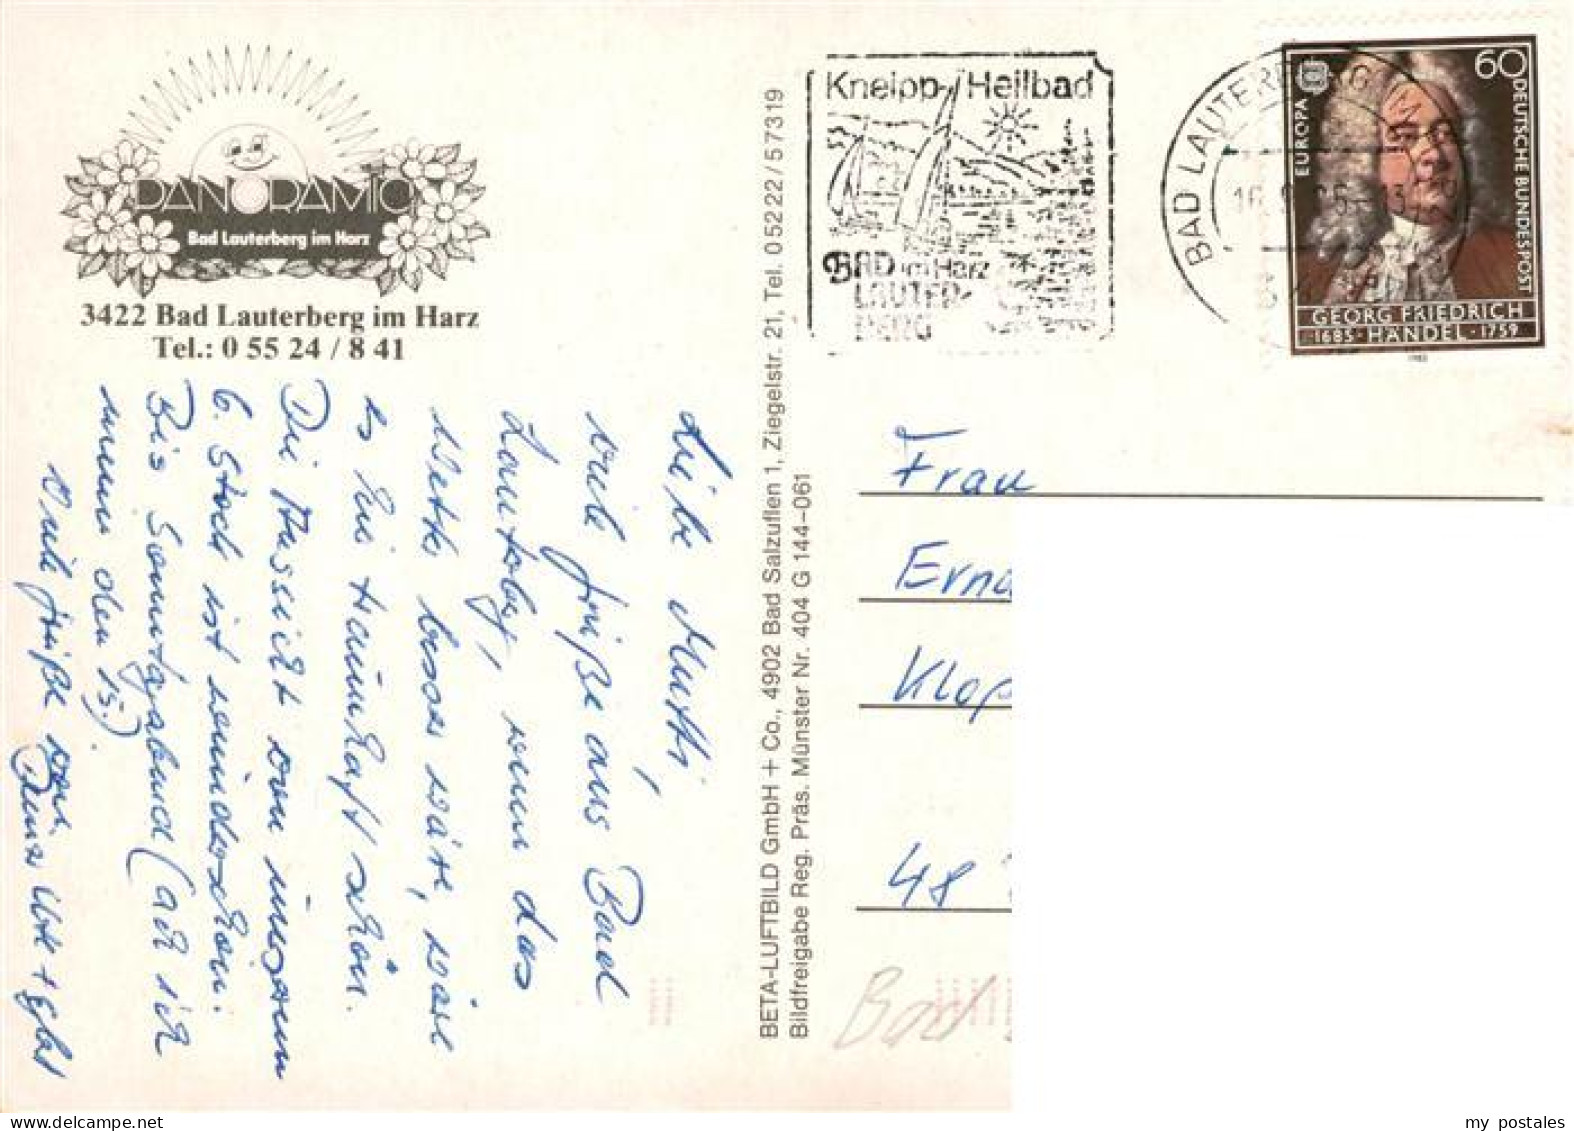 PANORAMIC
Bad Lauterberg im Harz
3422 Bad Lauterberg im Harz
Tel.: 0 55 24 / 8 41
Liebe Mutti,
viele Grüße aus Bad
Lauterbg, wenn das
Wetter besser wäre, wäre
es hier traumhaft schön.
Die Aussicht von unserem
6. Stock ist wunderschön.
Bis Sonntagabend (ach ich
nunn den 15.)
Viele Grüße von
Deiner Ute +
BETA-LUFTBILD GmbH + Co., 4902 Bad Salzuflen 1, Ziegelstr. 21, Tel. 05222/57319
Bildfreigabe Reg. Präs. Münster Nr. 404 G 144-061
Kneipp-Heilbad
BAD im Harz
LAUTER-
BERG
BAD LAUTERBERG IM
60
EUROPA
DEUTSCHE BUNDESPOST
GEORG FRIEDRICH
1685 · HÄNDEL · 1759
1985
Frau
Erna
Klop
48
Bad
my postales